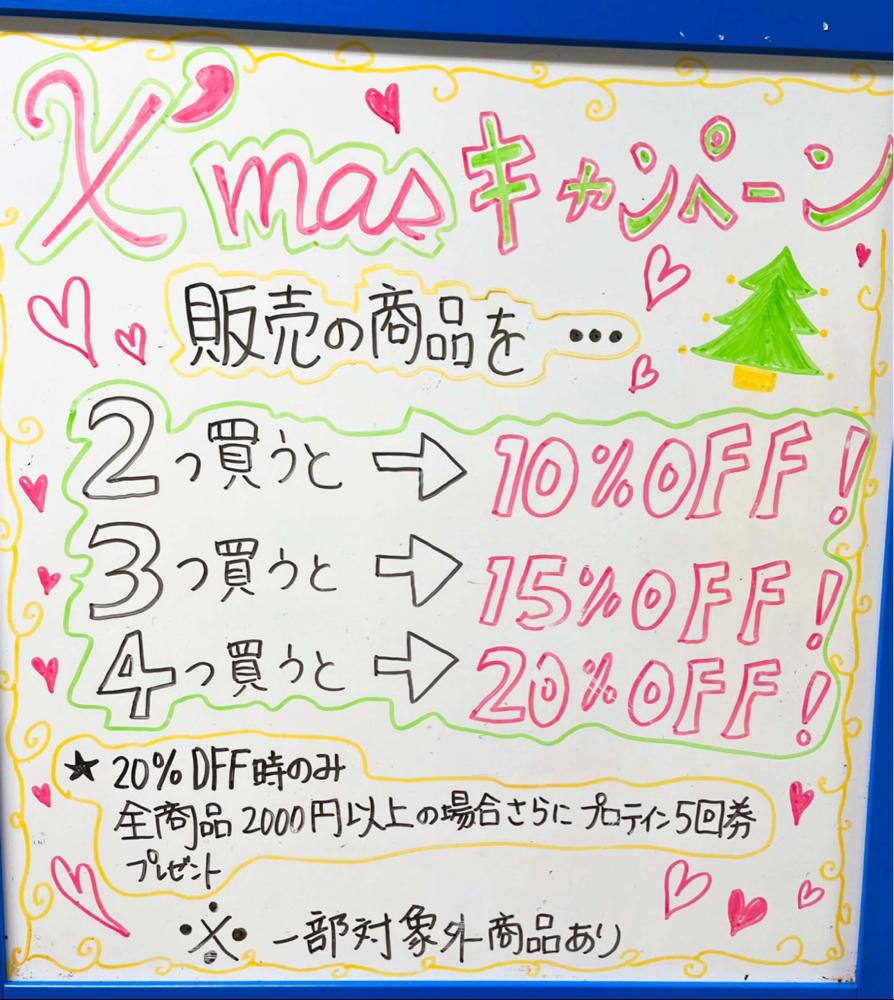 X'masキャンペーン
販売の商品を…
2つ買うと→10%OFF!
3つ買うと→15%OFF!
4つ買うと→20%OFF!
★20%OFF時のみ
全商品2000円以上の場合さらにプロテイン5回券
プレゼント
※一部対象外商品あり